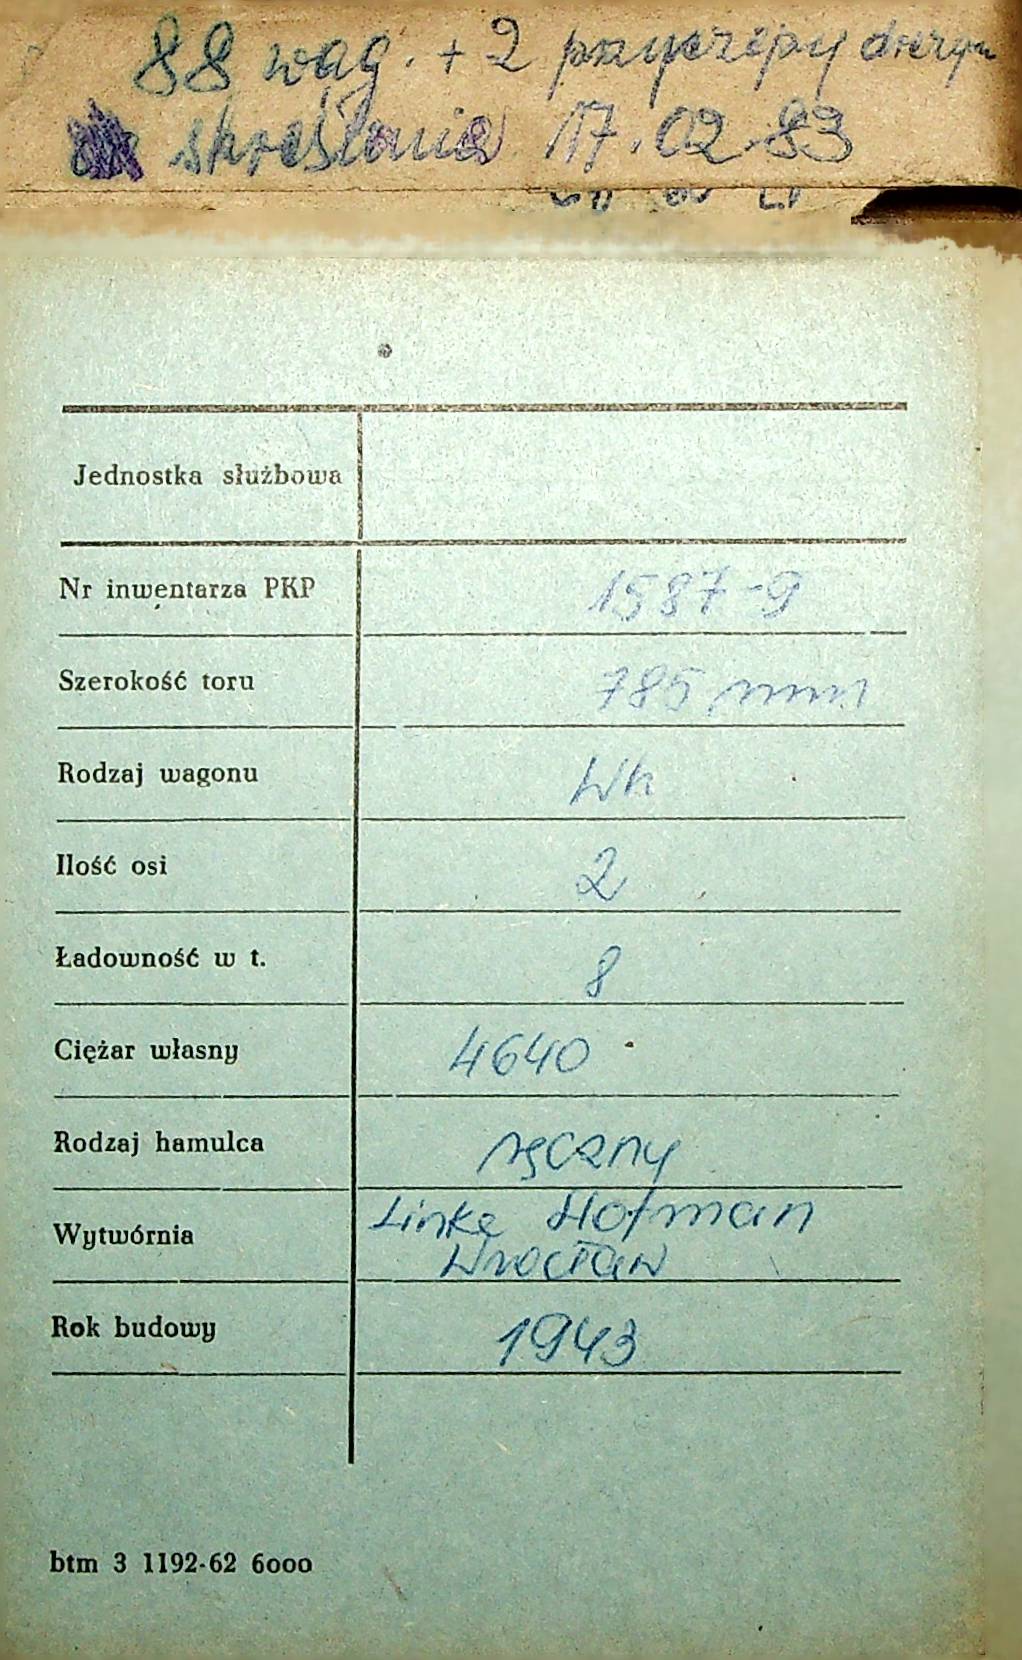 88 wag. + 2 przyczepy drezyn
skreślenia 17.02.83
Jednostka służbowa
Nr inwentarza PKP 1587-9
Szerokość toru 785 mm
Rodzaj wagonu Wk
Ilość osi 2
Ładowność w t. 8
Ciężar własny 4640
Rodzaj hamulca ręczny
Wytwórnia Linke Hofman
Wrocław
Rok budowy 1943
btm 3 1192-62 6000